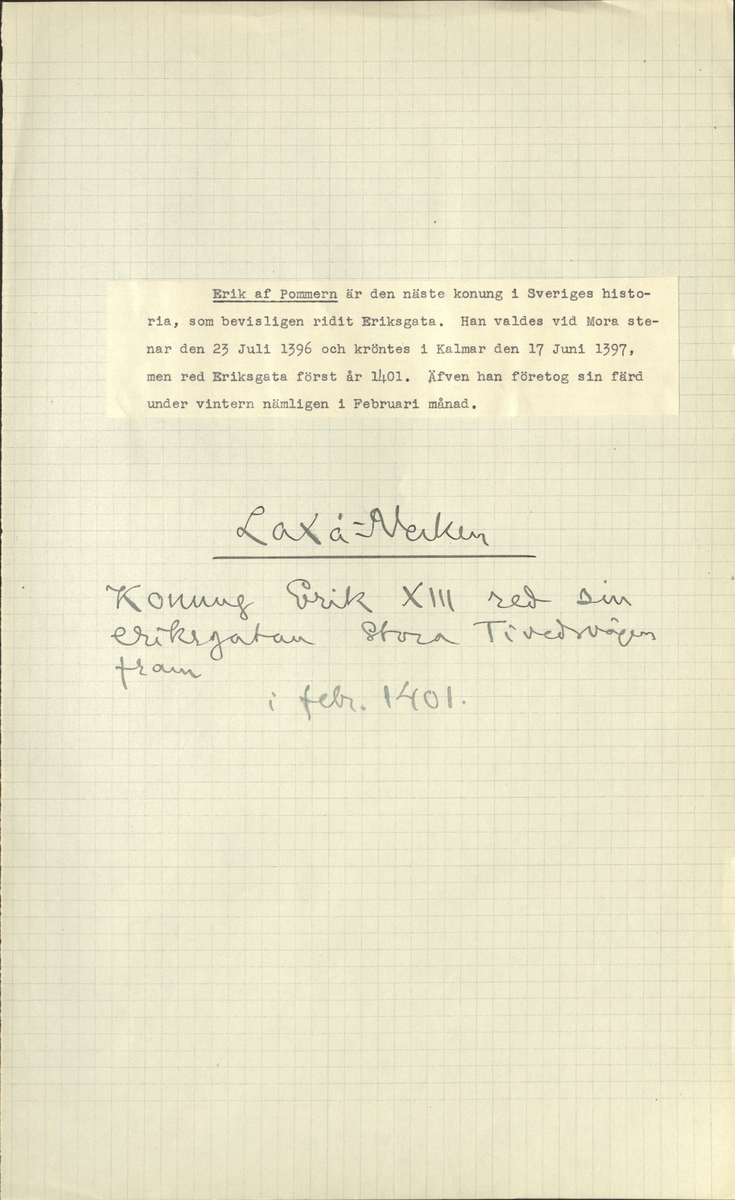 Erik af Pommern är den näste konung i Sveriges histo-
ria, som bevisligen ridit Eriksgata. Han valdes vid Mora ste-
nar den 23 Juli 1396 och kröntes i Kalmar den 17 Juni 1397,
men red Eriksgata först år 1401. Äfven han företog sin färd
under vintern nämligen i Februari månad.
Laxå-Nerken
Konung Erik XIII red sin
eriksgatan Stora Tivedsvägen
fram
i febr. 1401.